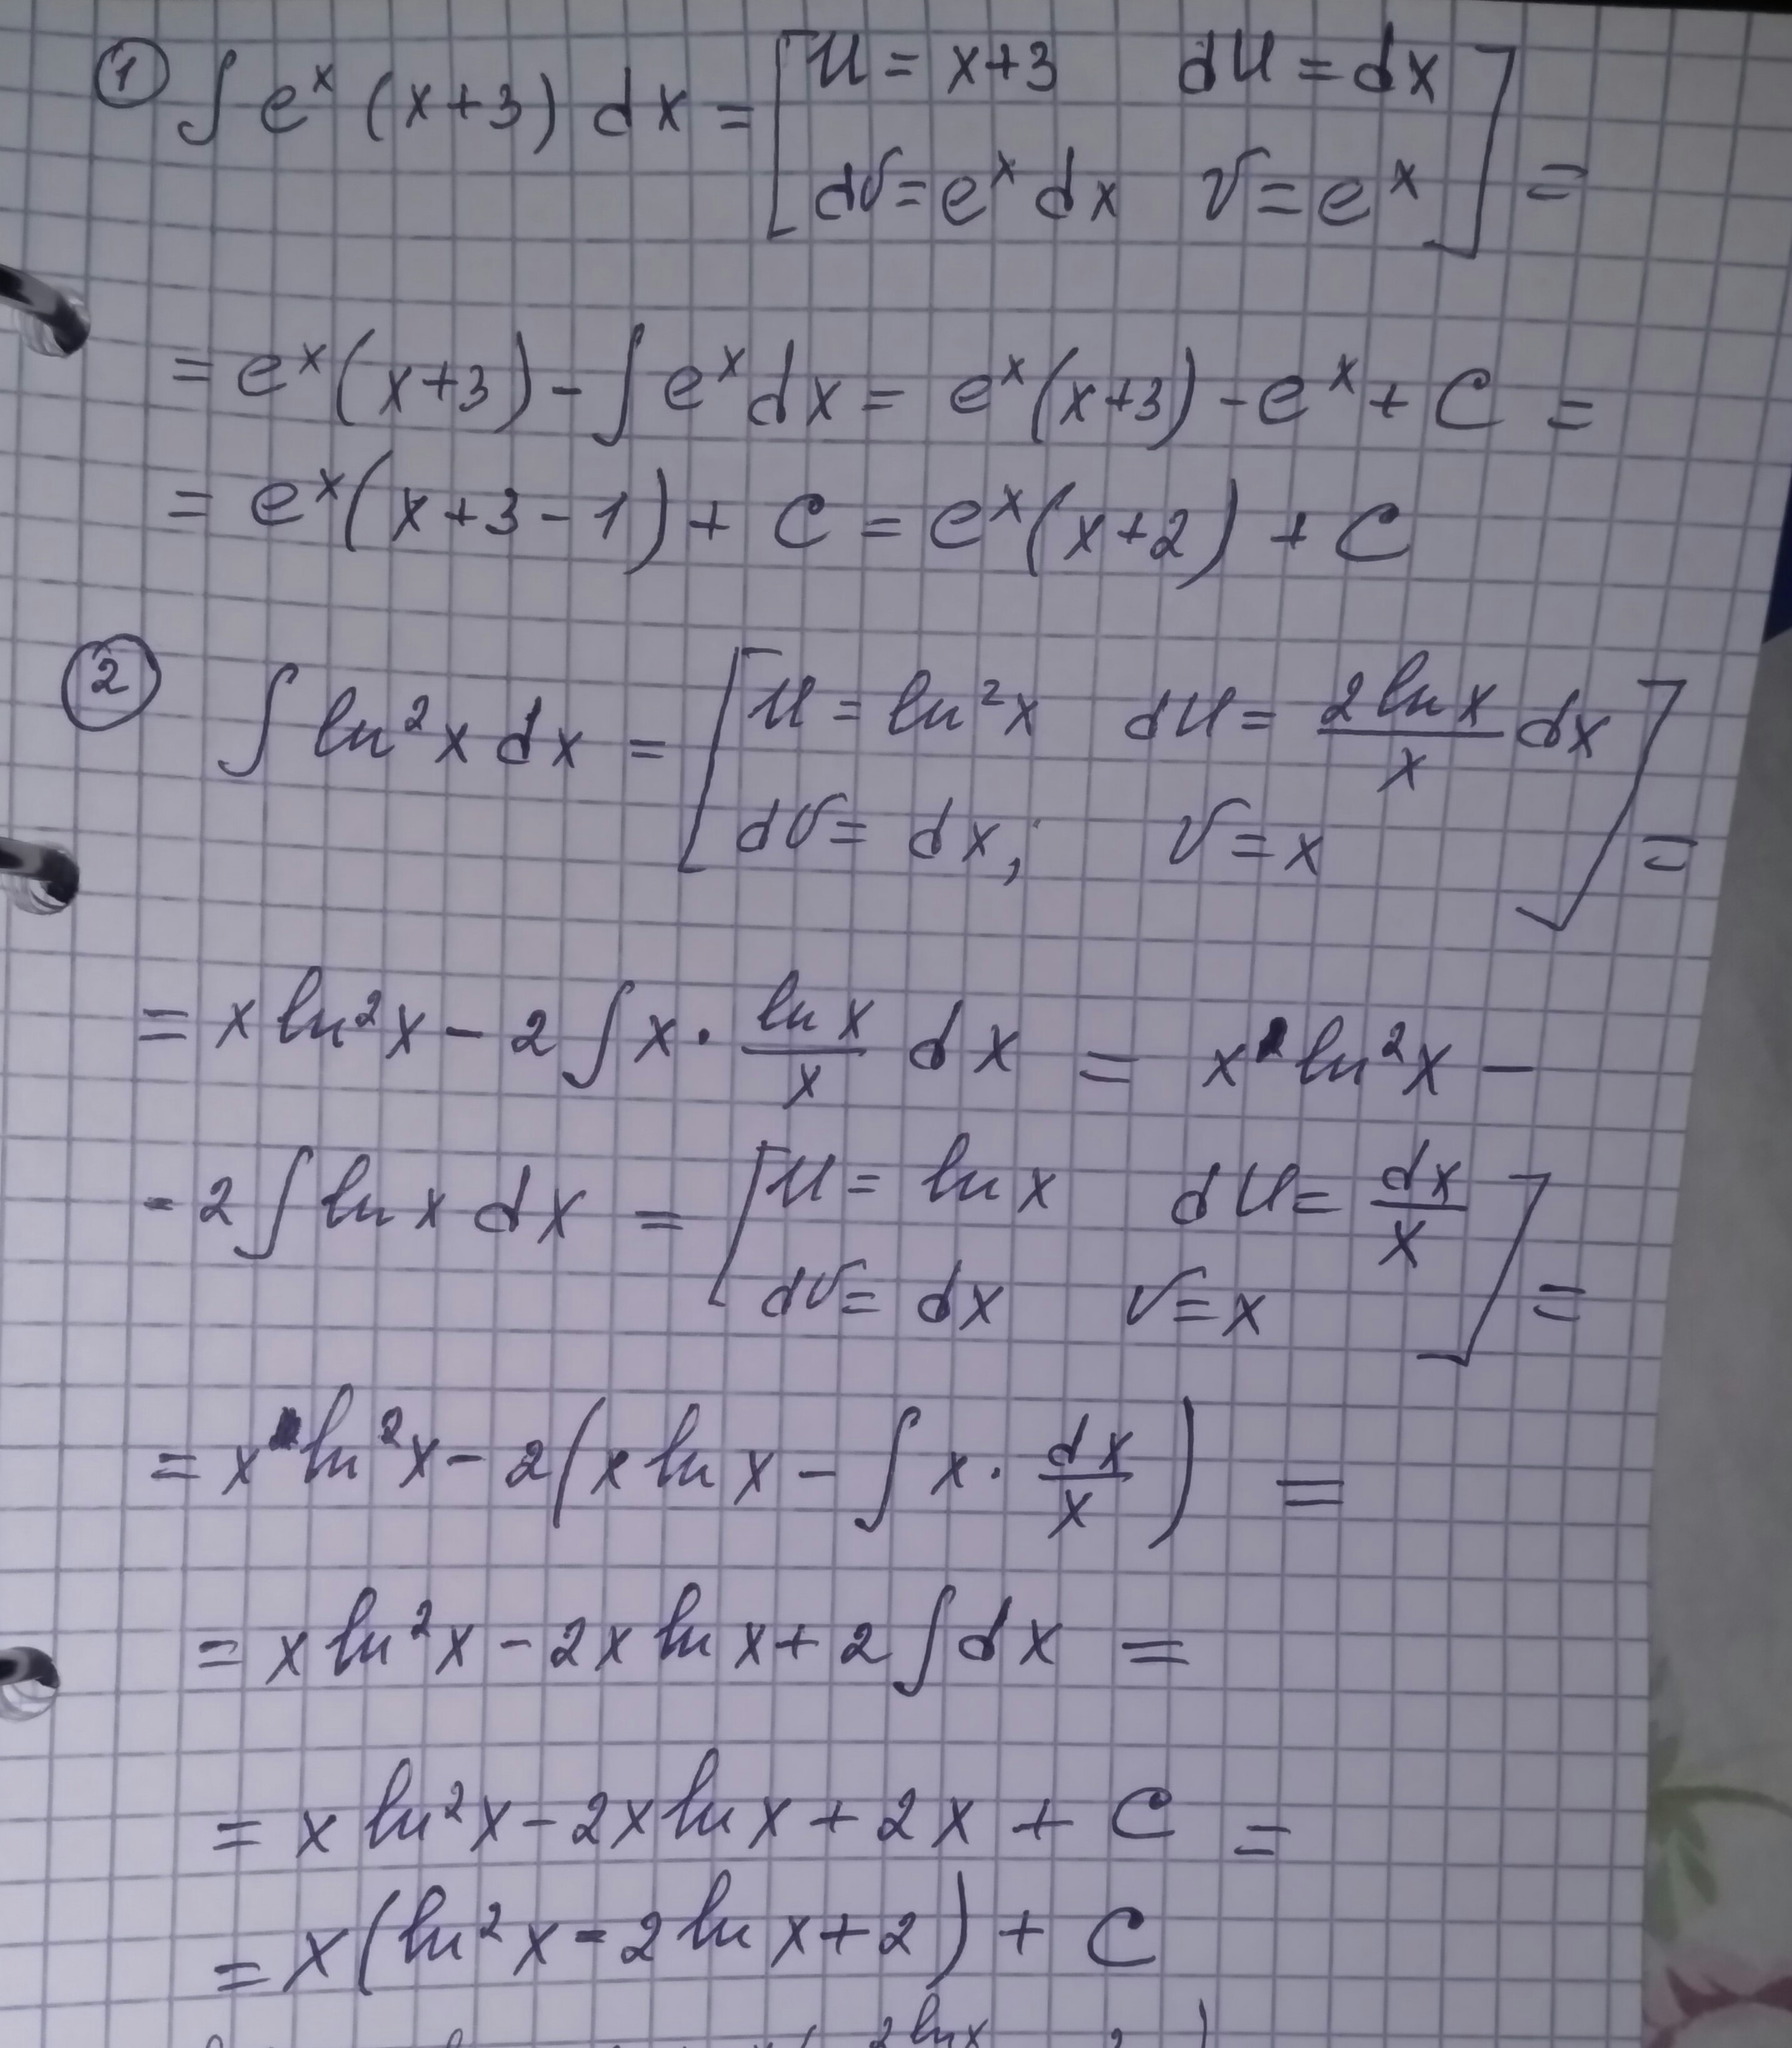 ① ∫ eˣ (x+3) dx = [ u = x+3 du = dx
dv = eˣ dx v = eˣ ] =
= eˣ(x+3) - ∫ eˣ dx = eˣ(x+3) - eˣ + C =
= eˣ(x+3-1) + C = eˣ(x+2) + C
② ∫ ln²x dx = [ u = ln²x du = 2 ln x / x dx
dv = dx; v = x ] =
= x ln²x - 2 ∫ x · ln x / x dx = x ln²x -
- 2 ∫ ln x dx = [ u = ln x du = dx / x
dv = dx v = x ] =
= x ln²x - 2(x ln x - ∫ x · dx / x) =
= x ln²x - 2x ln x + 2 ∫ dx =
= x ln²x - 2x ln x + 2x + C =
= x(ln²x - 2 ln x + 2) + C